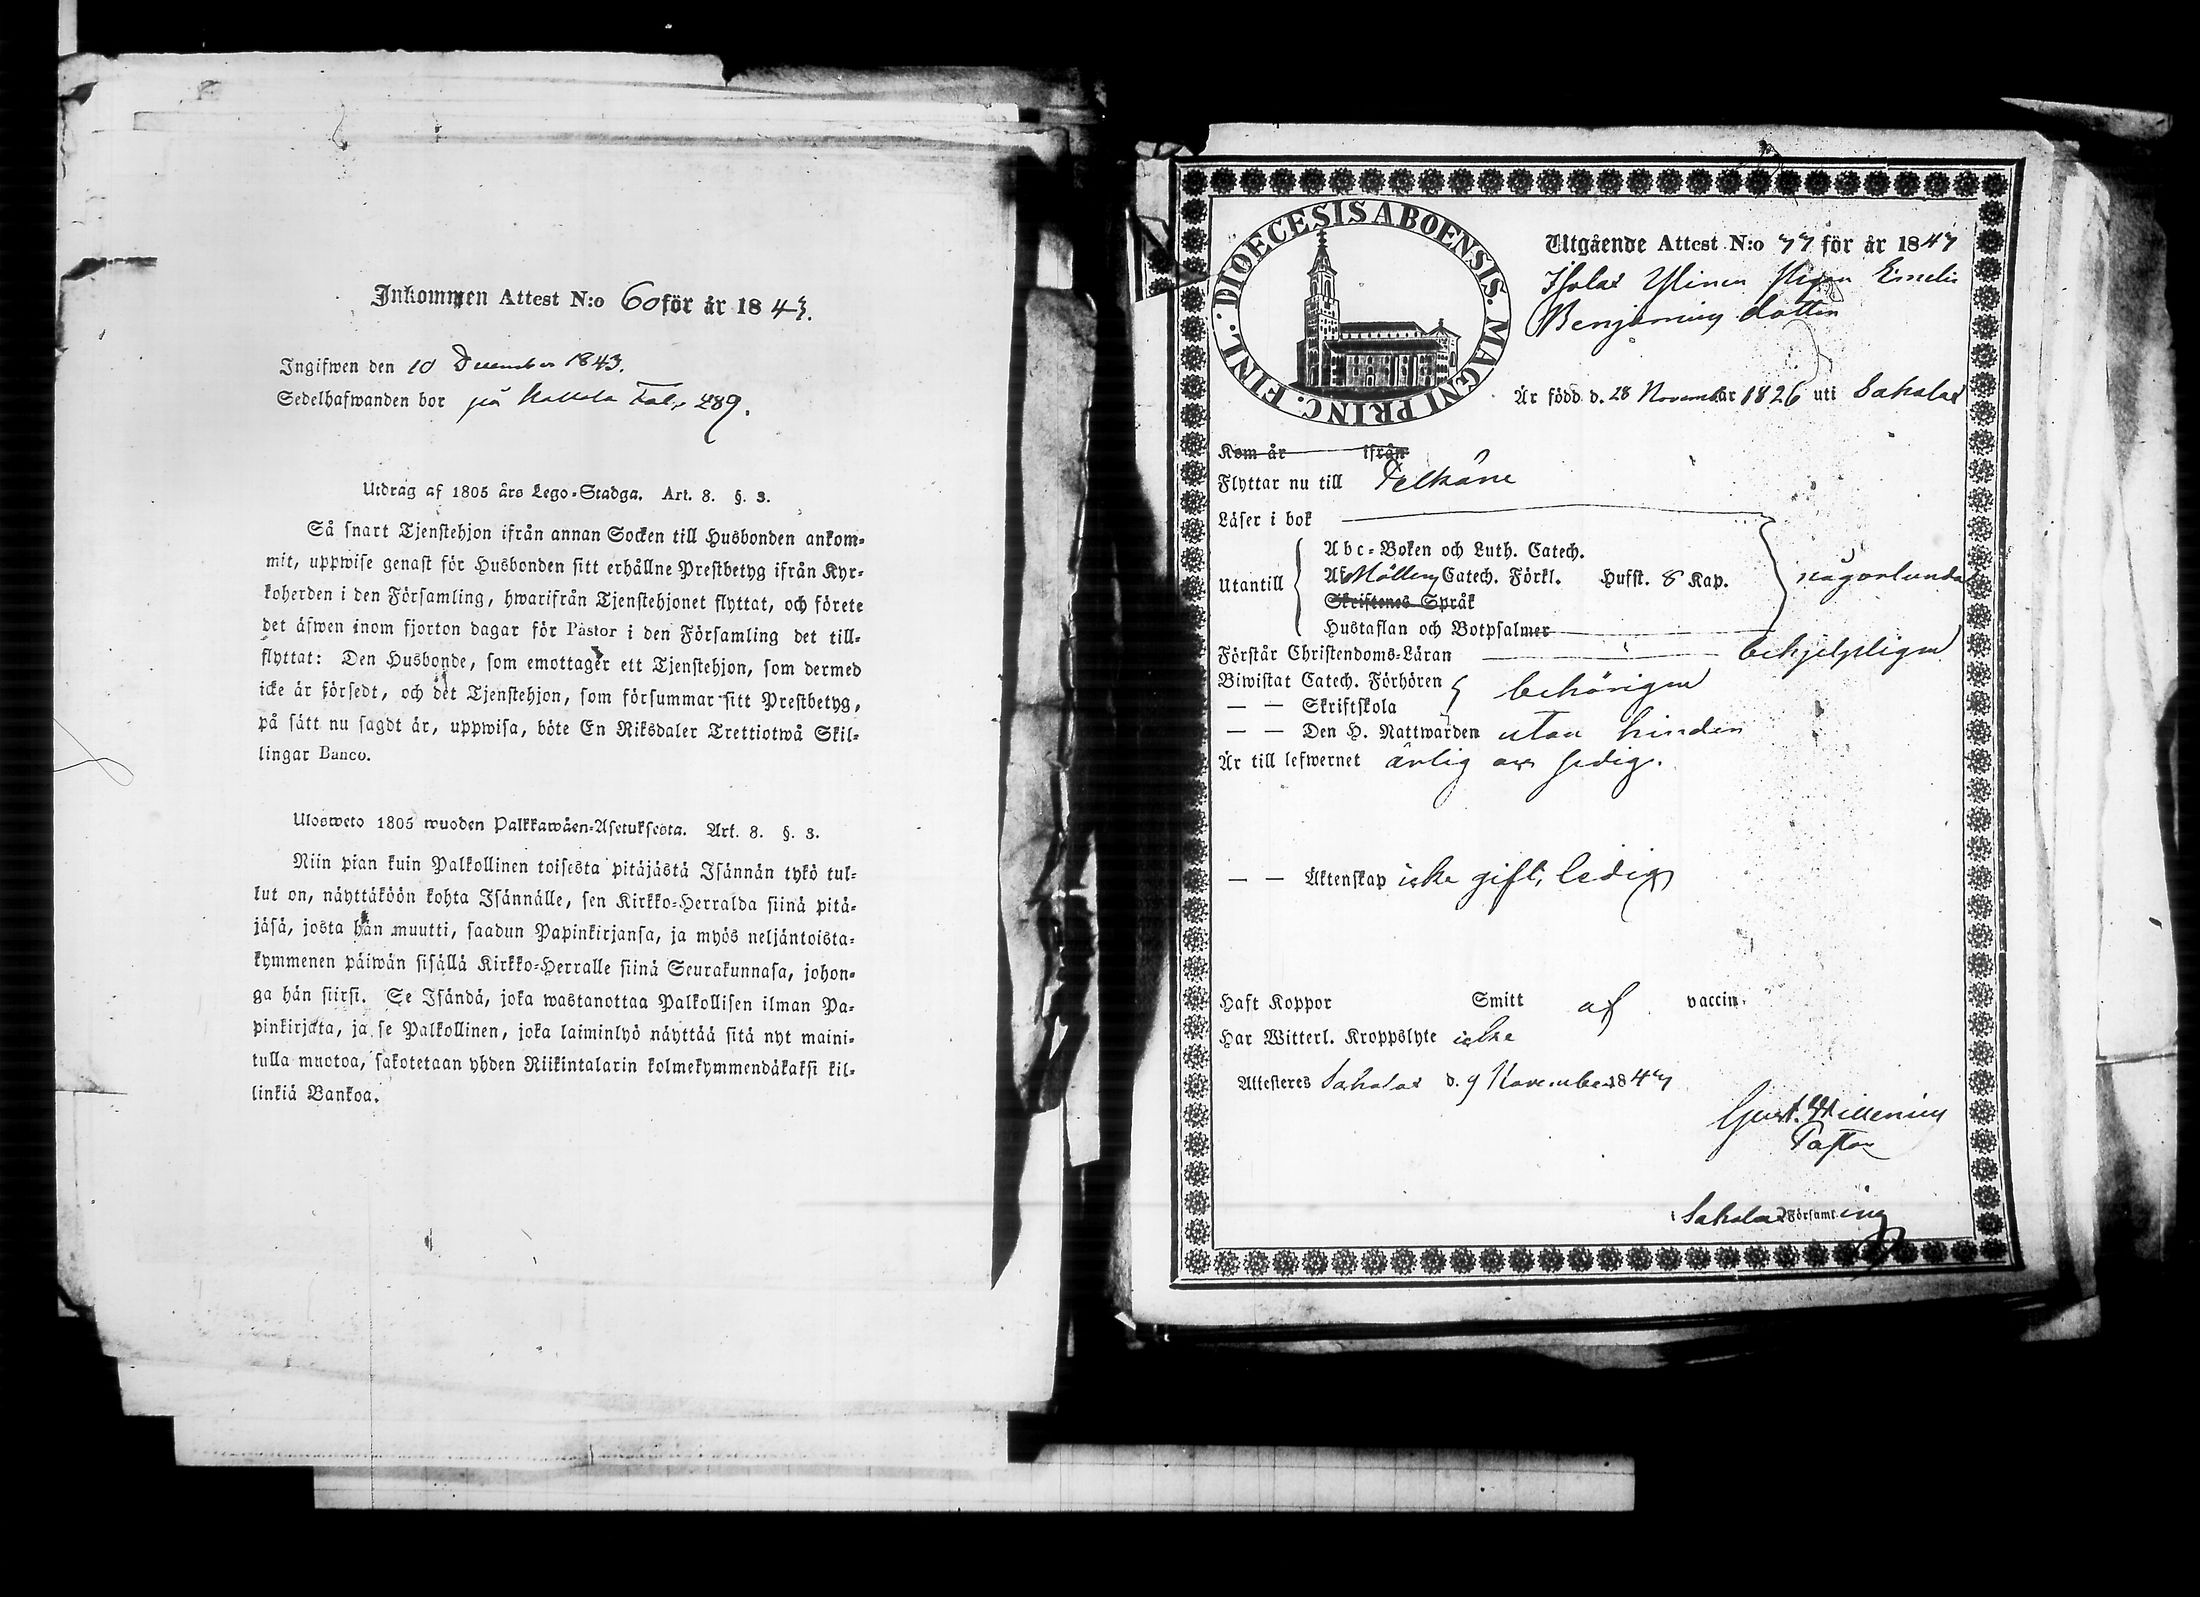 Inkommen Attest N:o 60 för år 1843.
Ingifwen den 10 December 1843.
Sedelhafwanden bor på 289.
Utdrag af 1805 års Lego-Stadga. Art. 8. §. 3.
Så snart Tjenstehjon ifrån annan Socken till Husbonden ankom-
mit, uppwise genast för Husbonden sitt erhållne Prestbetyg ifrån Kyr-
koherden i den Församling, hwarifrån Tjenstehjonet flyttat, och förete
det äfwen inom fjorton dagar för Pastor i den Församling det till-
flyttat: Den Husbonde, som emottager ett Tjenstehjon, som dermed
icke är försedt, och det Tjenstehjon, som försummar sitt Prestbetyg,
på sätt nu sagdt är, uppwisa, böte En Riksdaler Trettiotwå Skil-
lingar Banco.
Ulosweto 1805 wuoden Palkkawäen-Asetuksesta. Art. 8. §. 3.
Niin pian kuin Palkollinen toisesta pitäjästä Isännän tykö tul-
lut on, näyttäköön kohta Isännälle, sen Kirkko-Herralda siinä pitä-
jäsä, josta hän muutti, saadun Papinkirjansa, ja myös neljäntoista-
kymmenen päiwän sisällä Kirkko-Herralle siinä Seurakunnasa, johon-
ga hän siirsi. Se Isändä, joka wastanottaa Palkollisen ilman Pa-
pinkirjata, ja se Palkollinen, joka laiminlyö näyttää sitä nyt maini-
tulla muotoa, sakotetaan yhden Riikintalarin kolmekymmendäkaksi kil-
linkiä Bankoa.
DIOECESIS ABOENSIS. MAGNI PRINC. FINL.
Utgående Attest N:o 77 för år 1843
Pigan
Benjamins dotter
Är född d. 28 November 1826 uti Sahalax
Kom år ifrån
Flyttar nu till Pelkäne
Läser i bok
Abc-Boken och Luth. Catech.
Utantill Af Möllers Catech. Förkl. Hufst. 8 Kap. någorlunda
Skriftenes Språk
Hustaflan och Botpsalmer
Förstår Christendoms-Läran behjelpligen
Biwistat Catech. Förhören behörigen
— — Skriftskola
— — Den H. Nattwarden utan hinder
Är till lefwernet ärlig och sedig.
— — Äktenskap icke gift, ledig
Haft Koppor Smitt af vaccin.
Har Witterl. Kroppslyte icke
Attesteres Sahalax d. 9 November 1843
Pastor
i Sahalax Församling